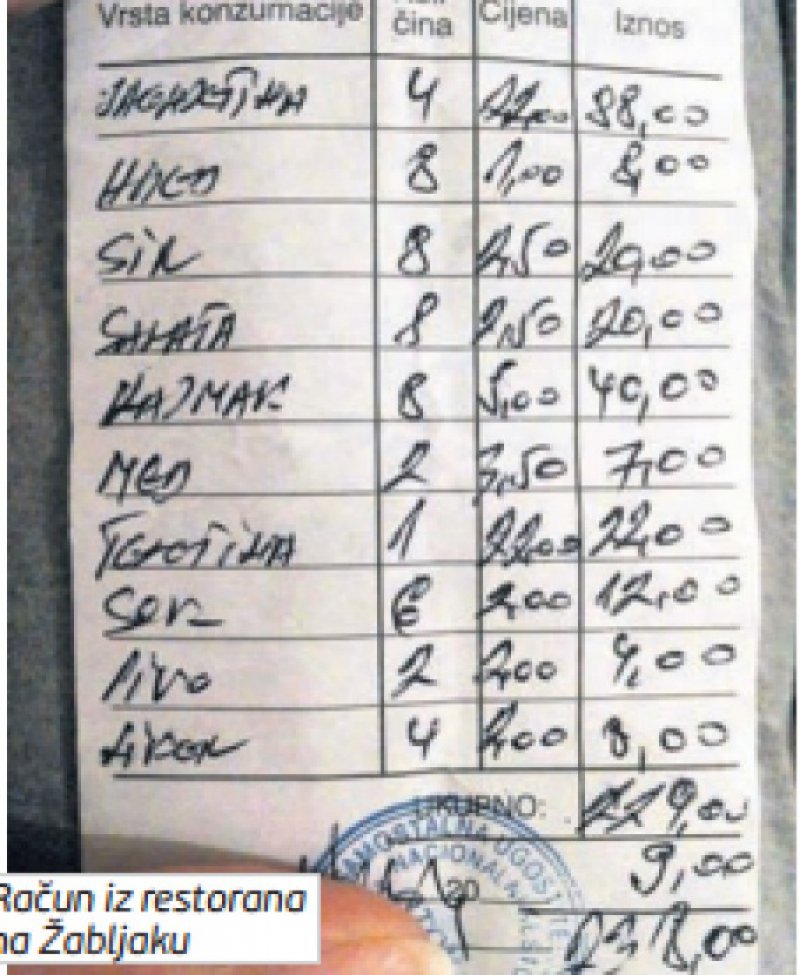 Vrsta konzumacije čina Cijena Iznos
JAGNJETINA 4 22,00 88,00
HLJEB 8 1,00 8,00
SIR 8 2,50 20,00
SALATA 8 2,50 20,00
KAJMAK 8 5,00 40,00
MED 2 3,50 7,00
TELETINA 1 22,00 22,00
SOK 6 2,00 12,00
PIVO 2 2,00 4,00
4 2,00 8,00
UKUPNO: 229,00
9,00
20
238,00
Račun iz restorana
na Žabljaku